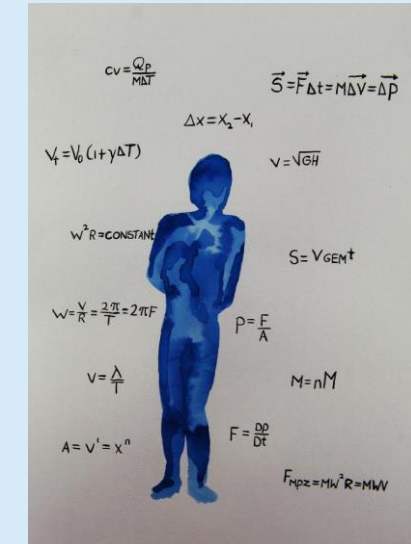 cv = Qp/MΔT
S⃗ = F⃗Δt = MΔV⃗ = Δp⃗
Δx = X₂ - X₁
V_T = V₀ (1 + γΔT)
V = √GH
W²R = CONSTANT
S = V GEM t
W = V/R = 2π/T = 2πF
P = F/A
V = λ/T
M = nM
A = V' = X^n
F = Dp/Dt
F_MPZ = MW²R = MWV